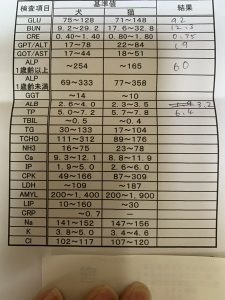 検査項目 基準値 結果
犬 猫
GLU 75~128 71~148 92
BUN 9.2~29.2 17.6~32.8 12.3
CRE 0.40~1.40 0.80~1.80 0.75
GPT/ALT 17~78 22~84 19
GOT/AST 17~44 18~51
ALP 1歳齢以上 ~254 ~165 60
ALP 1歳齢未満 69~333 77~358
GGT ~14 ~10
ALB 2.6~4.0 2.3~3.5 3.2
TP 5.0~7.2 5.7~7.8 6.4
TBIL ~0.5 ~0.4
TG 30~133 17~104
TCHO 111~312 89~176
NH3 16~75 23~78
Ca 9.3~12.1 8.8~11.9
IP 1.9~5.0 2.6~6.0
CPK 49~166 87~309
LDH ~109 ~187
AMYL 200~1,400 200~1,900
LIP 10~160 ~30
CRP ~0.7 —
Na 141~152 147~156
K 3.8~5.0 3.4~4.6
Cl 102~117 107~120